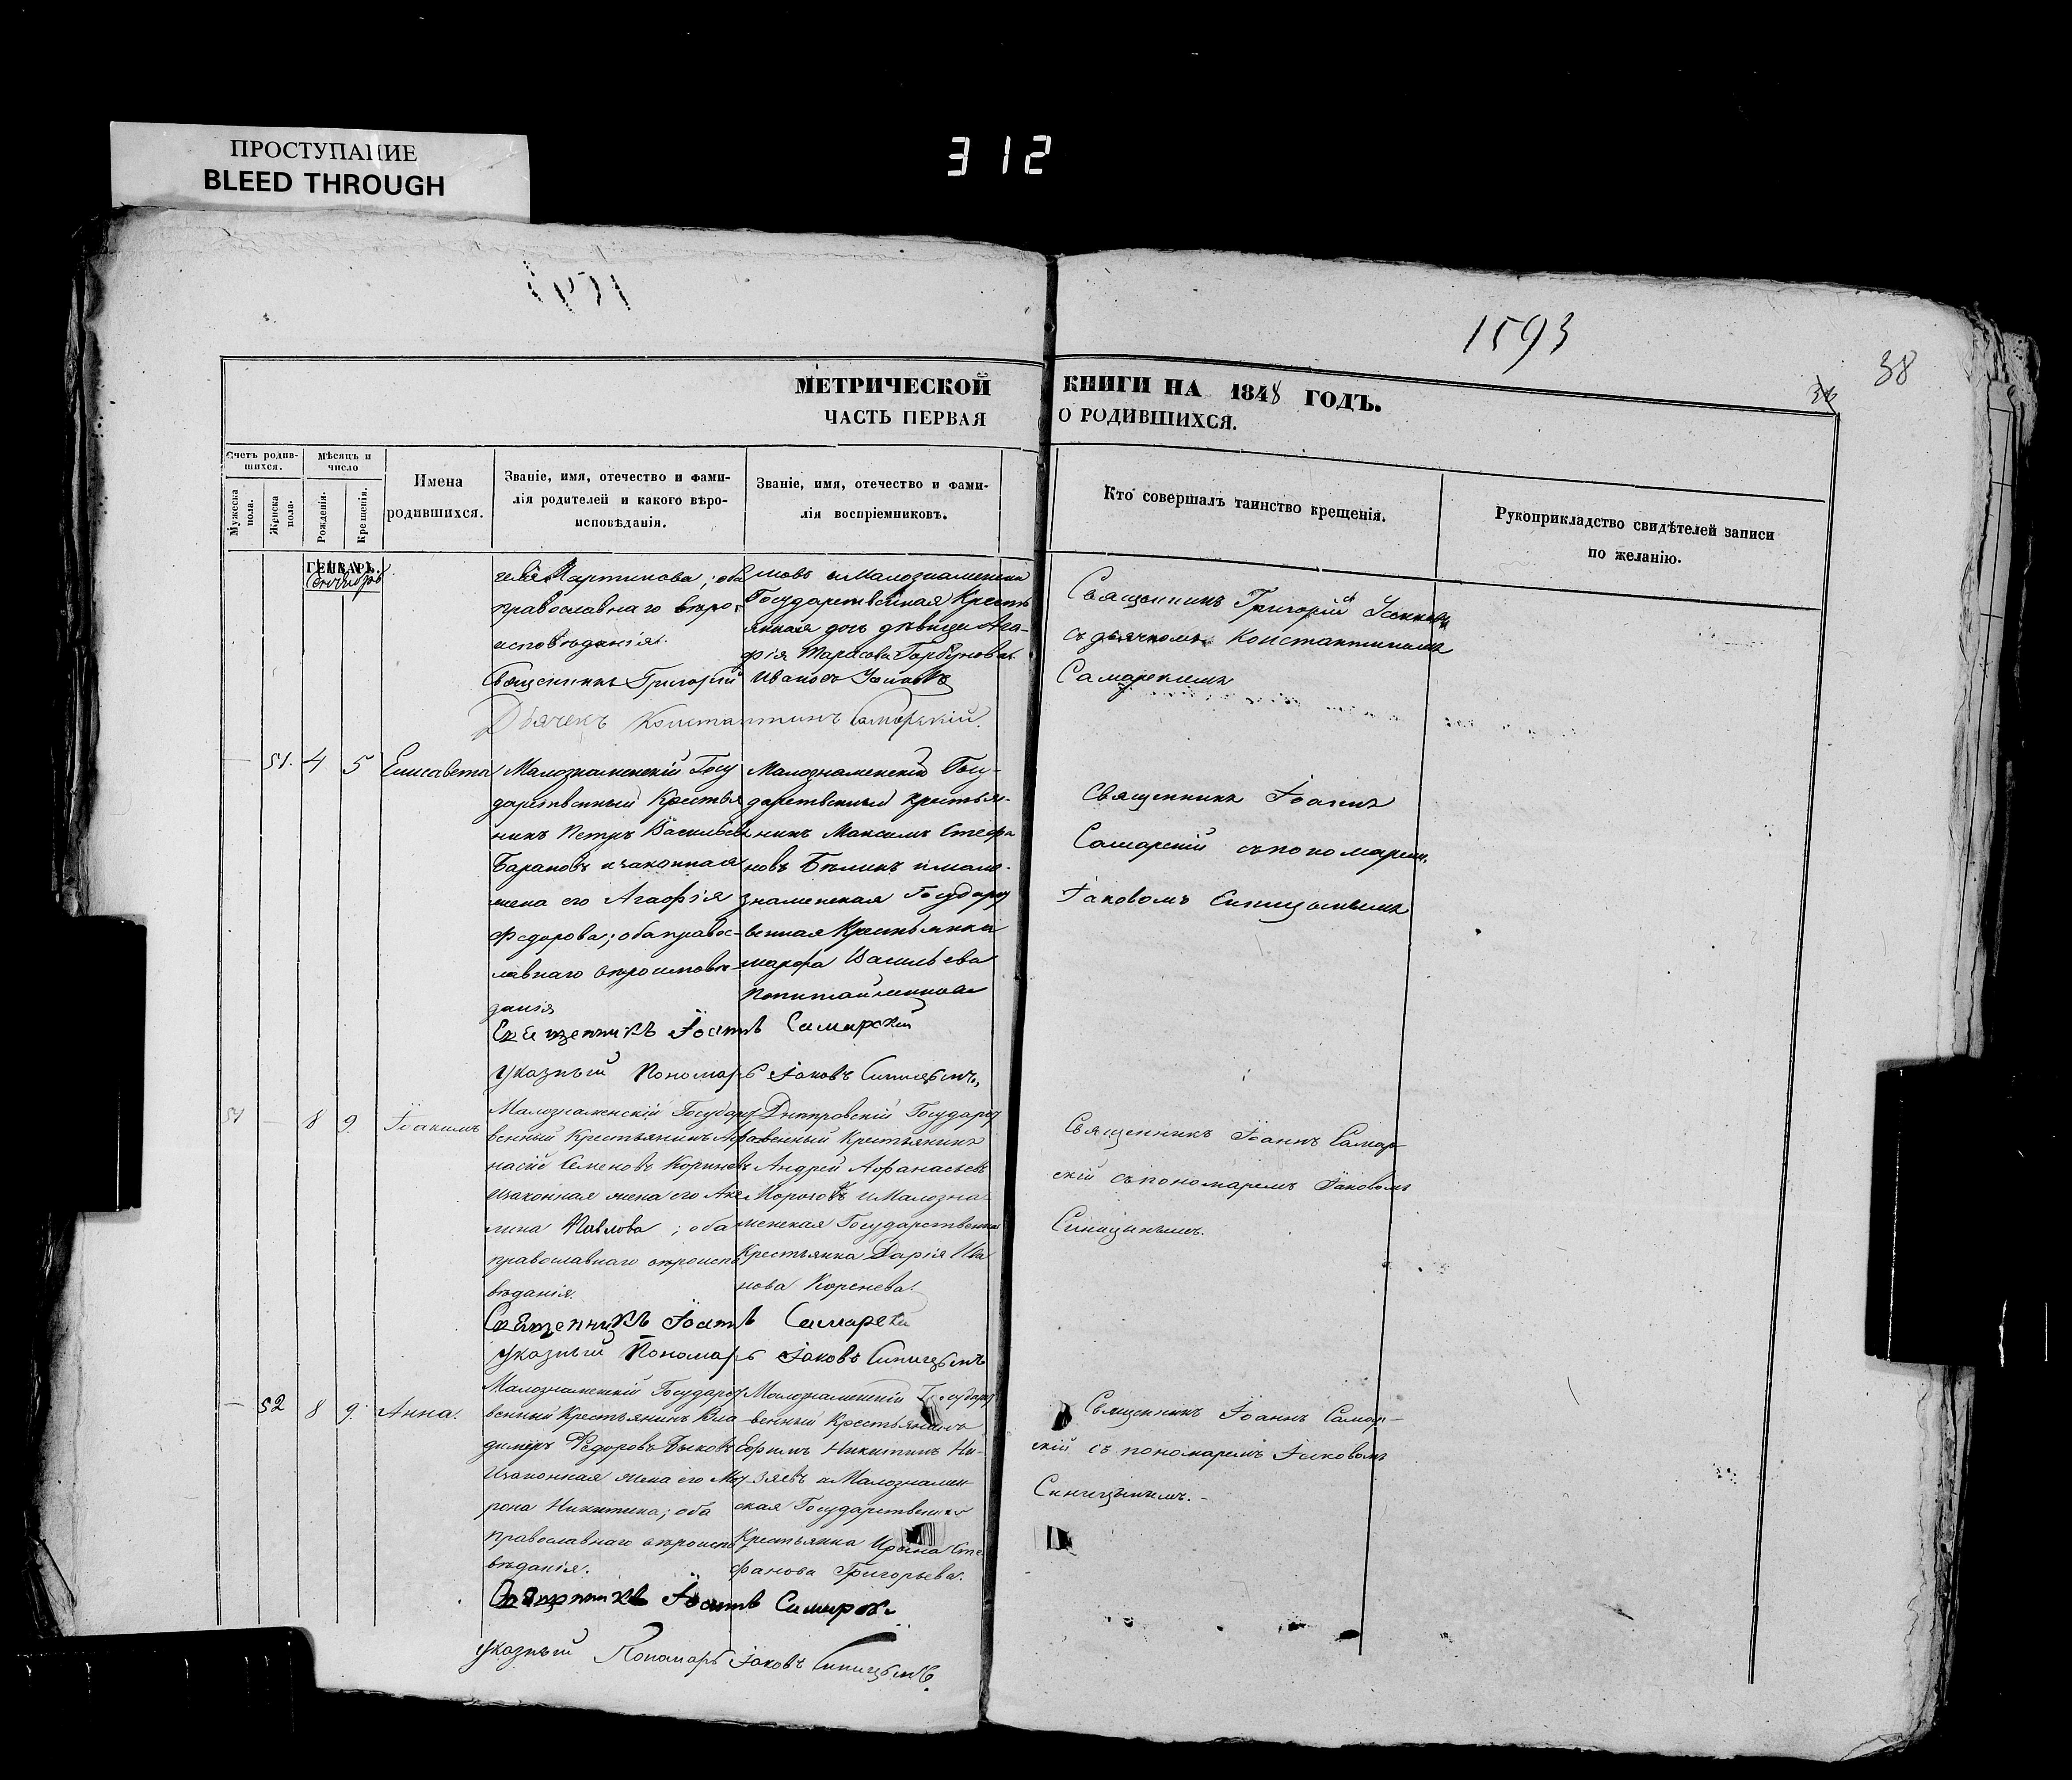 ПРОСТУПАНИЕ
BLEED THROUGH
312
1593
38
МЕТРИЧЕСКОЙ КНИГИ НА 1848 ГОДЪ.
ЧАСТЬ ПЕРВАЯ О РОДИВШИХСЯ.
Счетъ родив-
шихся.
Мужеска пола.
Женска пола.
Мѣсяцъ и
число
Рожденія.
Крещенія.
Имена
родившихся.
Званіе, имя, отечество и фами-
лія родителей и какого вѣро-
исповѣданія.
Званіе, имя, отечество и фами-
лія воспріемниковъ.
Кто совершалъ таинство крещенія.
Рукоприкладство свидѣтелей записи
по желанію.
ГЕНВАРЬ.
Мартинова; оба
православнаго вѣро-
исповѣданія.
мовъ и Малознаменска
Государственная Кресть
янкая дочь дѣвица Ага-
фія Тарасова Горбунова
Священникъ Григорій
съ дьячкомъ Константиномъ
Самарскимъ
Священникъ Григорій Ивановъ
Дьячекъ Константинъ Самарскій.
— 51. 4 5 Елисавета
Малознаменскій Госу
дарственный Крестья
никъ Петръ Васильевъ
Барановъ и законная
жена его Агафія
Федорова; оба правос-
лавнаго вѣроисповѣ-
данія
Малознаменскій Госу-
дарственный крестья-
никъ Максимъ Стефа
новъ Бѣликъ и мало-
знаменская Государст
венная Крестьянка
марфа Васильева
Священникъ Іоаннъ
Самарскій съ пономаремъ
Іаковомъ Синицынымъ
Священникъ Іоаннъ Самарскій
Указный Пономарь Іаковъ Синицынъ,
51 — 8 9. Іоакимъ
Малознаменскій Государст
венный Крестьянинъ Афа
насій Семеновъ Кориневъ
и законная жена его Аке
лина Павлова; оба
православнаго вѣроиспо
вѣданія.
Днѣпровскій Государст
венный Крестьянинъ
Андрей Афанасьевъ
Морозовъ и Малозна
менская Государственна
Крестьянка Дарія Ива
нова Коренева.
Священникъ Іоаннъ Самар-
скій съ пономаремъ Іаковомъ
Синицинымъ.
Священникъ Іоаннъ Самарскі
Указный Пономарь Іаковъ Синицынъ
— 52 8 9. Анна.
Малознаменскій Государст
венный Крестьянинъ Вла
димеръ Федоровъ Быковъ
И законная жена его Мат
рона Никитина; оба
православнаго вѣроиспо
вѣданія.
Малознаменскій Государст
венный Крестьянинъ
Ефимъ Никитинъ Кн-
язевъ и Малознамен
ская Государственна
Крестьянка Ирина Сте
фанова Григорьева.
Священникъ Іоаннъ Самар-
скій съ пономаремъ Іаковомъ
Синицынымъ.
Священникъ Іоаннъ Самарск.
Указный Пономарь Іаковъ Синицынъ.